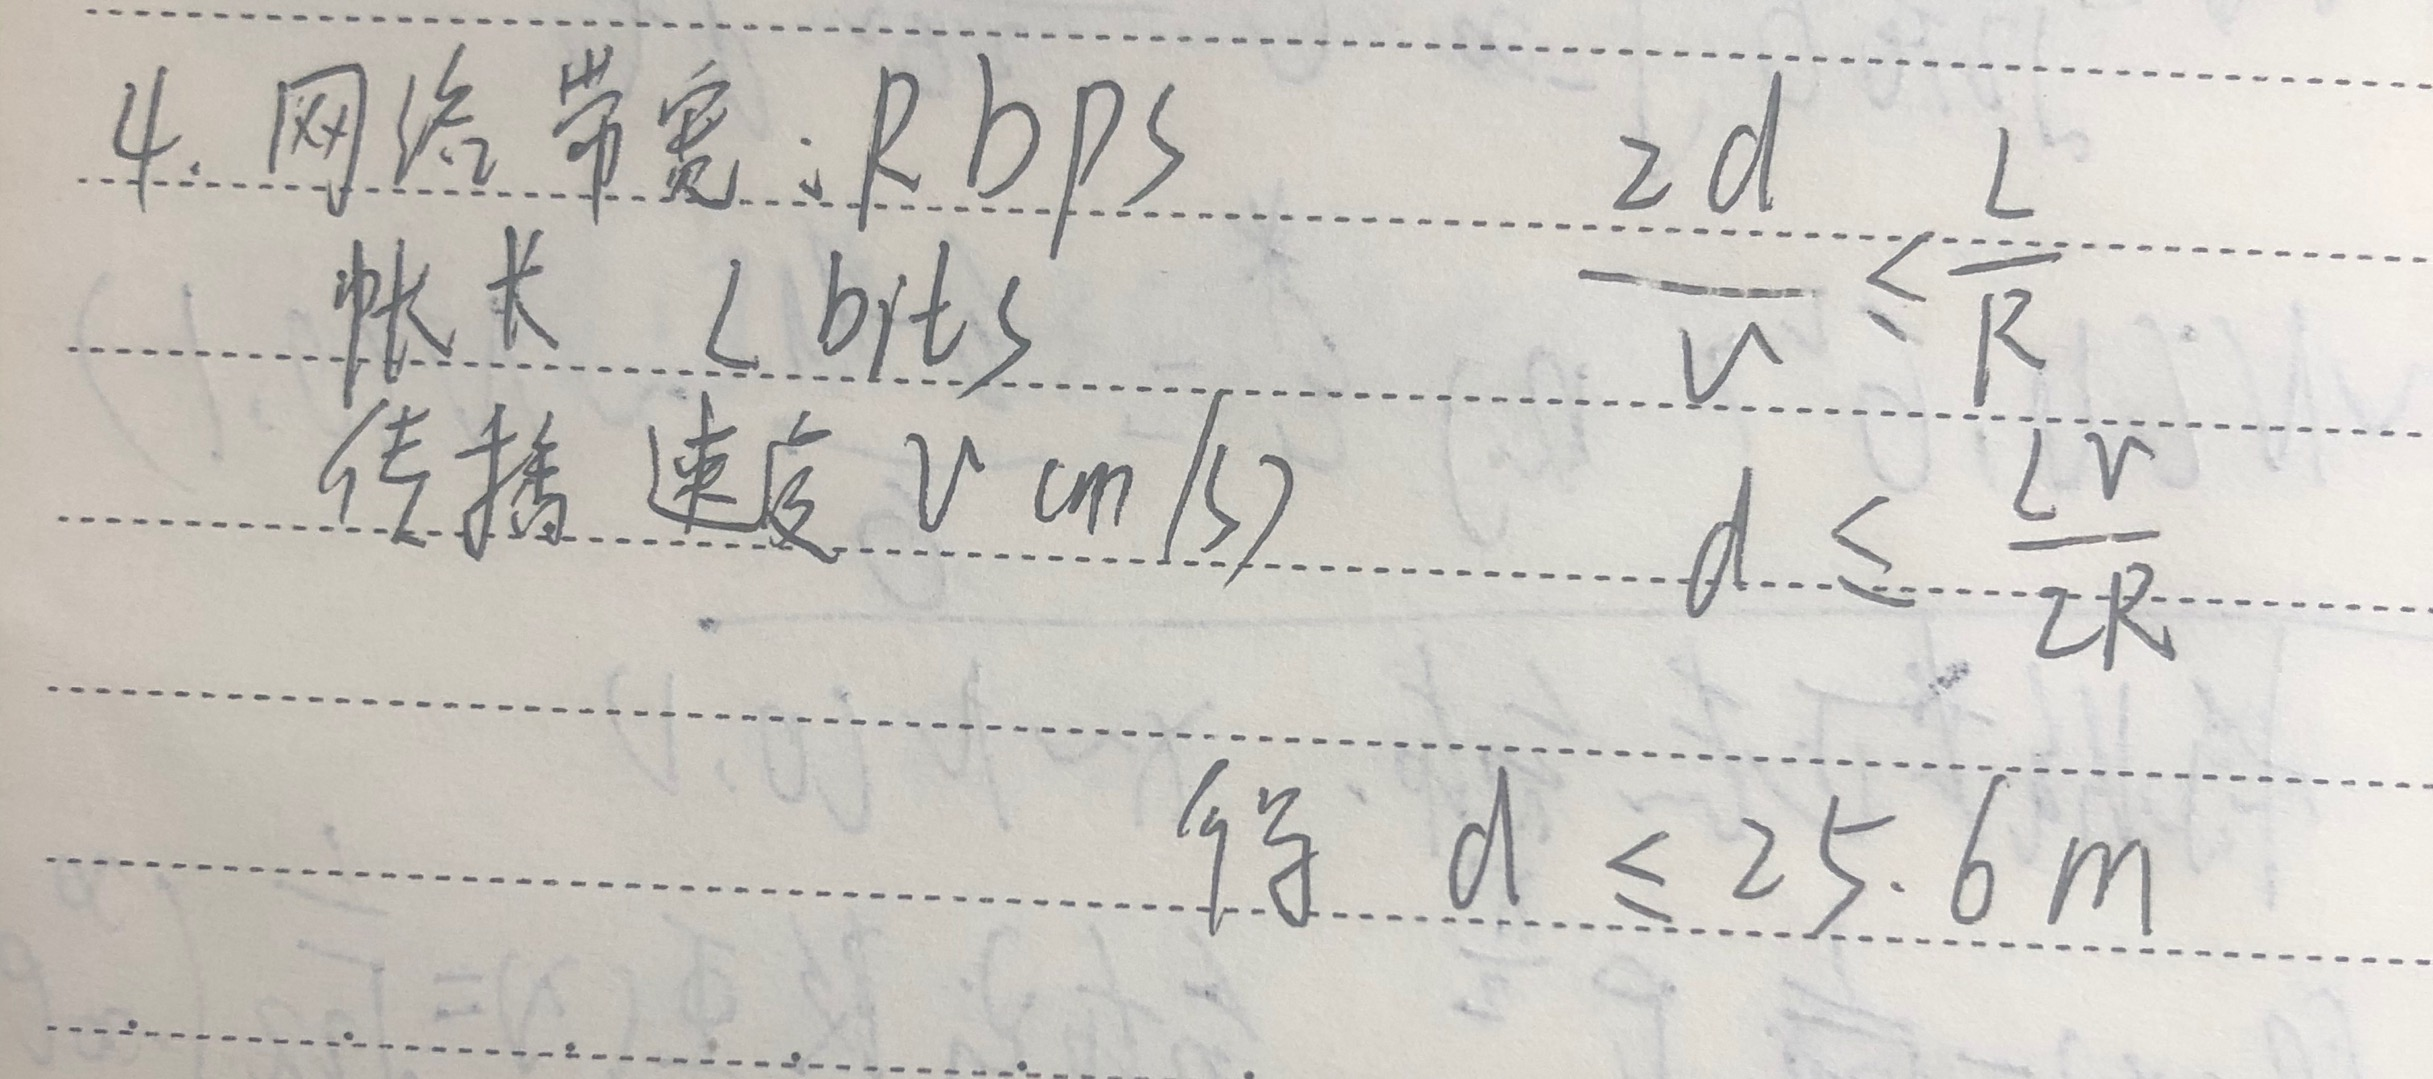 4. 网络带宽:R bps
帧长 L bits
传播速度 v cm/(s)
2d/v ≤ L/R
d ≤ Lv/2R
得 d ≤ 25.6m